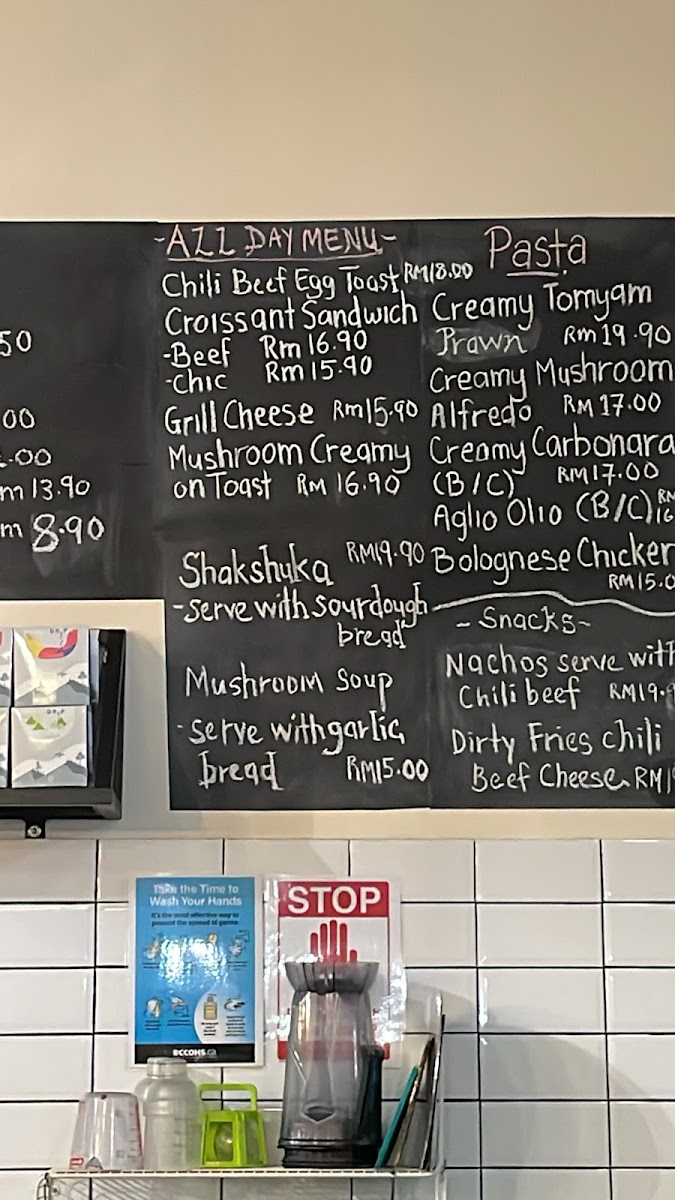 50
00
.00
m 13.90
m 8.90
-ALL DAY MENU-
Chili Beef Egg Toast RM18.00
Croissant Sandwich
-Beef Rm 16.90
-Chic Rm 15.90
Grill Cheese Rm15.90
Mushroom Creamy
on Toast RM 16.90
Shakshuka RM19.90
-serve with sourdough
bread
Mushroom Soup
-serve with garlic
bread RM15.00
Pasta
Creamy Tomyam
Prawn Rm 19.90
Creamy Mushroom
Alfredo RM 17.00
Creamy Carbonara
(B/C) RM17.00
Aglio Olio (B/C) RM
16
Bolognese Chicken
RM15.0
~Snacks~
Nachos serve with
Chili beef RM19.9
Dirty Fries chili
Beef Cheese RM1
DRIP
DRIP
Take the Time to
Wash Your Hands
It's the most effective way to
prevent the spread of germs
CCOHS.ca
STOP